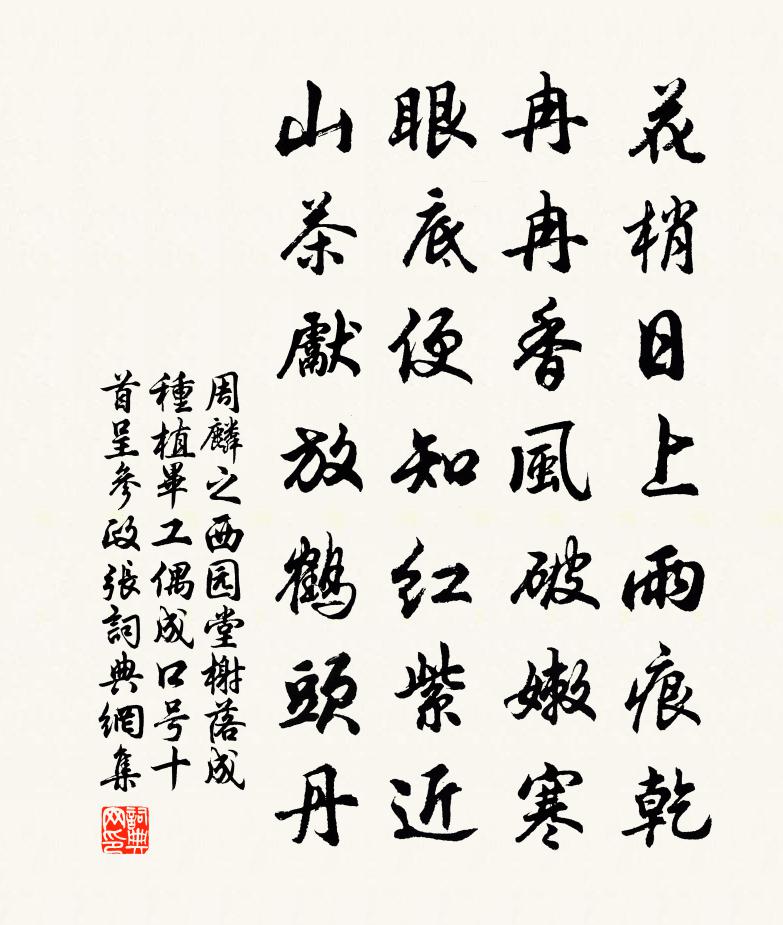 花梢日上雨痕乾
冉冉香風破嫩寒
眼底便知紅紫近
山茶獻放鶴頭丹
周麟之西园堂榭落成
種植畢工偶成口号十
首呈參政張詞典網集
詞典網印